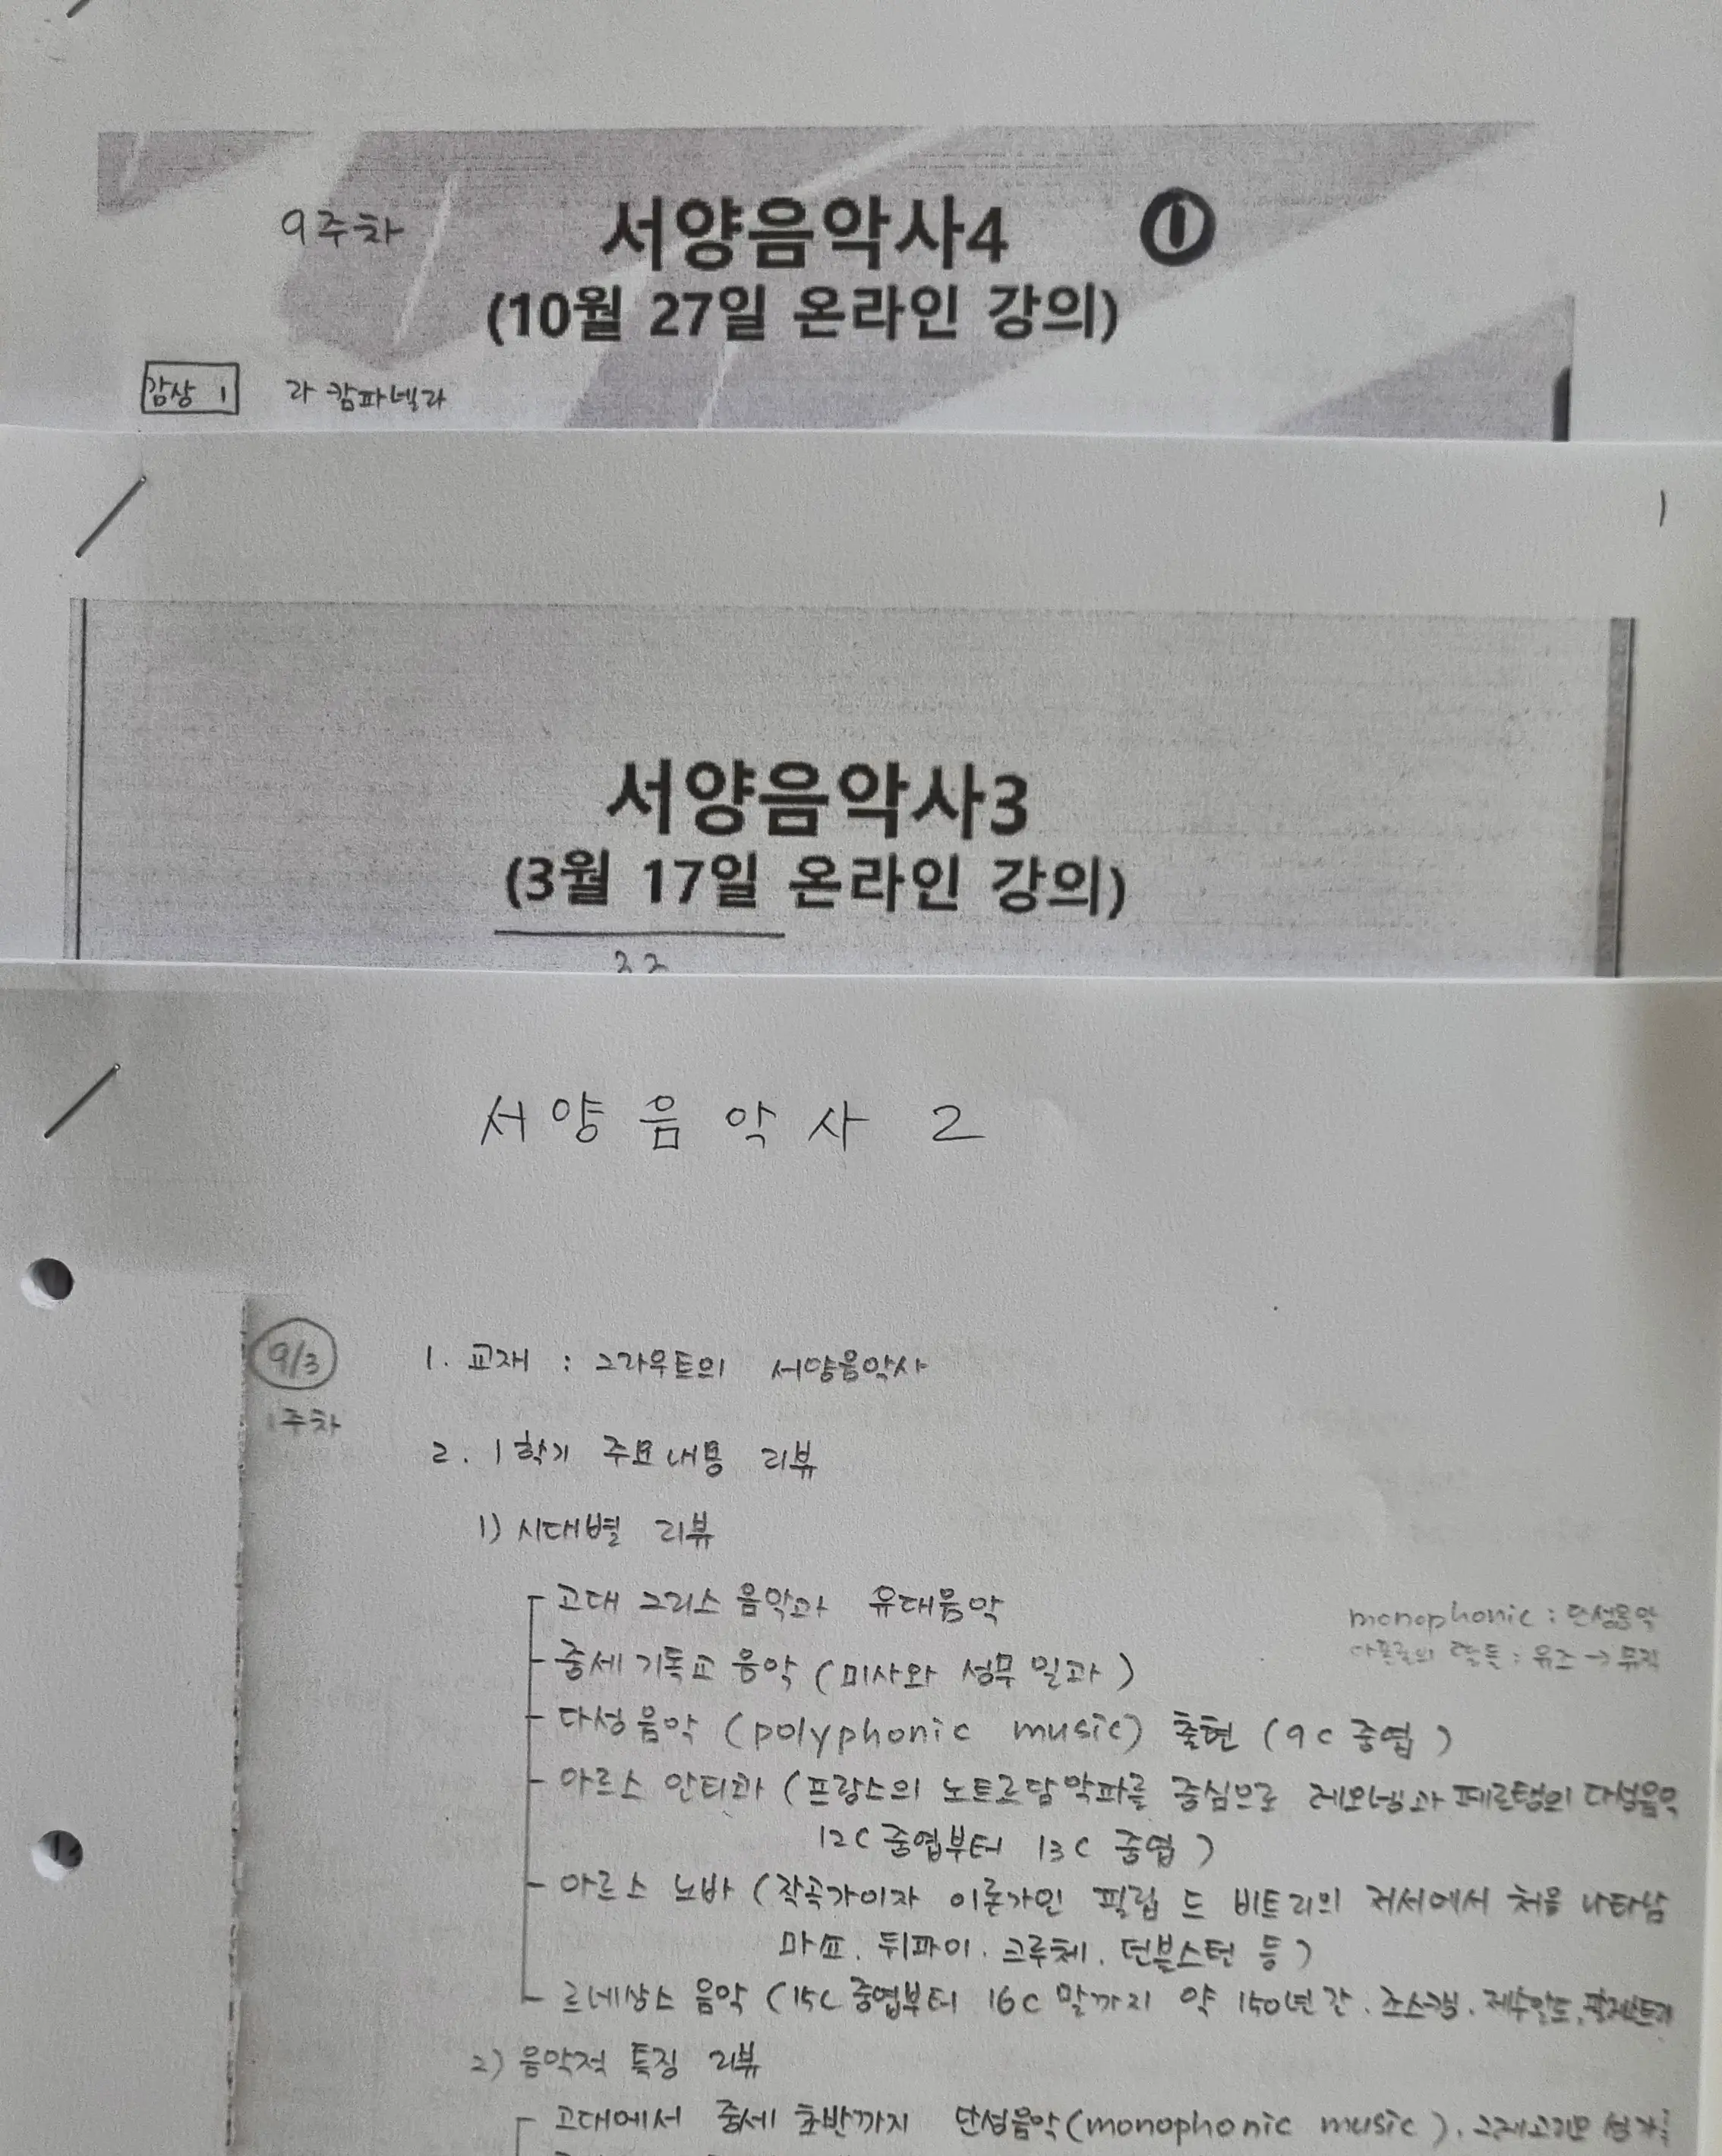 9주차 서양음악사4 ①
(10월 27일 온라인 강의)
감상 1 라 캄파넬라
1
서양음악사3
(3월 17일 온라인 강의)
서양음악사 2
9/3
1주차
1. 교재 : 그라우트의 서양음악사
2. 1학기 주요내용 리뷰
1) 시대별 리뷰
고대 그리스 음악과 유대음악
monophonic : 단성음악
중세 기독교 음악 (미사와 성무일과)
: 뮤즈 → 뮤직
다성음악 (polyphonic music) 출현 (9C 중엽)
아르스 안티콰 (프랑스의 노트르담악파를 중심으로 레오냉과 페르탱의 다성음악
12C 중엽부터 13C 중엽)
아르스 노바 (작곡가이자 이론가인 필립 드 비트리의 저서에서 처음 나타남
마쇼. 뒤파이. 크루체. 던스터블 등)
르네상스 음악 (15C 중엽부터 16C 말까지 약 150년간. 조스캥. 제수알도.
2) 음악적 특징 리뷰
고대에서 중세 초반까지 단성음악(monophonic music). 그레고리오 성가